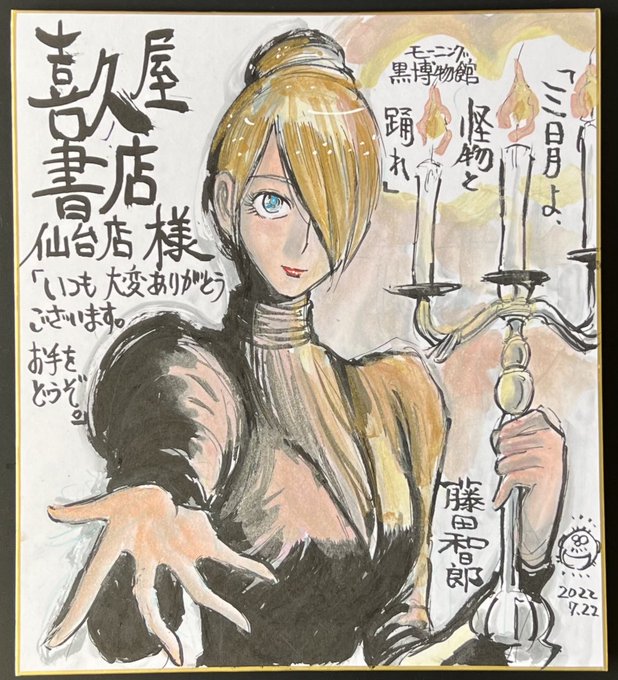 喜久屋
書店
仙台店様
「いつも大変ありがとう
ございます。
お手を
どうぞ。」
モーニング
黒博物館
「三日月よ、
怪物と
踊れ」
藤田和日郎
2022
7.22